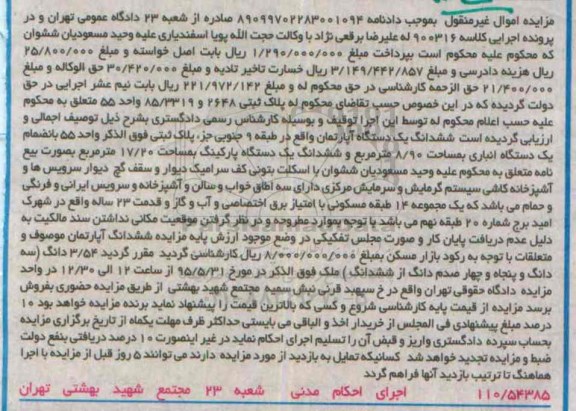 مزایده اموال غیرمنقول بموجب دادنامه ۸۹۰۹۹۷۰۲۲۸۳۰۰۱۰۹۴ صادره از شعبه ۲۳ دادگاه عمومی تهران و در
پرونده اجرایی کلاسه ۹۰۰۳۱۶ له علیرضا برقعی نژاد با وکالت حجت الله پویا اسفندیاری علیه وحید مسعودیان ششوان
که محکوم علیه محکوم است بپرداخت مبلغ ۱/۲۹۰/۰۰۰/۰۰۰ ریال بابت اصل خواسته و مبلغ ۲۵/۸۰۰/۰۰۰
ریال هزینه دادرسی و مبلغ ۳/۱۴۹/۴۴۲/۸۵۷ ریال خسارت تاخیر تادیه و مبلغ ۳۰/۴۲۰/۰۰۰ حق الوکاله و مبلغ
۲۱/۴۰۰/۰۰۰ حق الزحمه کارشناسی در حق محکوم له و مبلغ ۲۲۱/۹۷۲/۱۴۲ ریال بابت نیم عشر اجرایی در حق
دولت گردیده که در این خصوص حسب تقاضای محکوم له پلاک ثبتی ۲۶۴۸ و ۸۵/۳۳۱۹ واحد ۵۵ متعلق به محکوم
علیه حسب اعلام محکوم له توسط این اجرا توقیف و بوسیله کارشناس رسمی دادگستری بشرح ذیل توصیف اجمالی و
ارزیابی گردیده است ششدانگ یک دستگاه آپارتمان واقع در طبقه ۹ جنوبی جزء پلاک ثبتی فوق الذکر واحد ۵۵ بانضمام
یک دستگاه انباری بمساحت ۸/۹۰ مترمربع و ششدانگ یک دستگاه پارکینگ بمساحت ۱۷/۲۰ مترمربع بصورت بیع
نامه متعلق به محکوم علیه وحید مسعودیان ششوان با اسکلت بتونی کف سرامیک دیوار و سقف گچ دیوار سرویس ها و
آشپزخانه کاشی سیستم گرمایش و سرمایش مرکزی دارای سه اطاق خواب و سالن و آشپزخانه و سرویس ایرانی و فرنگی
و حمام می باشد که یک مجموعه ۱۴ طبقه مسکونی با امتیاز برق اختصاصی و آب و گاز و قدمت ۲۳ ساله واقع در شهرک
امید برج شماره ۲۰ طبقه نهم می باشد با توجه بموارد مطروحه و در نظر گرفتن موقعیت مکانی نداشتن سند مالکیت به
دلیل عدم دریافت پایان کار و صورت مجلس تفکیکی در وضع موجود ارزش پایه مزایده ششدانگ آپارتمان موصوف و
متعلقات با توجه به رکود بازار مسکن بمبلغ ۸/۰۰۰/۰۰۰/۰۰۰ ریال کارشناسی گردید مقرر گردید ۳/۵۴ دانگ (سه
دانگ و پنجاه و چهار صدم دانگ از ششدانگ) ملک فوق الذکر در مورخ ۹۵/۵/۳۱ از ساعت ۱۲ الی ۱۲/۳۰ در واحد
مزایده دادگاه حقوقی تهران واقع درخ سپهبد قرنی نبش سمیه مجتمع شهید بهشتی از طریق مزایده حضوری بفروش
برسد مزایده از قیمت پایه کارشناسی شروع و کسی که بالاترین قیمت را پیشنهاد نماید برنده مزایده خواهد بود ۱۰
درصد مبلغ پیشنهادی فی المجلس از خریدار اخذ و الباقی می بایستی حداکثر ظرف مهلت یکماه از تاریخ برگزاری مزایده
بحساب سپرده دادگستری واریز و قبض آن را تسلیم اجرای احکام نماید در غیر اینصورت ۱۰ درصد دریافتی بنفع دولت
ضبط و مزایده تجدید خواهد شد کسانیکه تمایل به بازدید از مورد مزایده دارند می توانند ۵ روز قبل از مزایده با اجرا
هماهنگ تا ترتیب بازدید آنها فراهم گردد
۱۱۰/۵۴۳۸۵ اجرای احکام مدنی شعبه ۲۳ مجتمع شهید بهشتی تهران